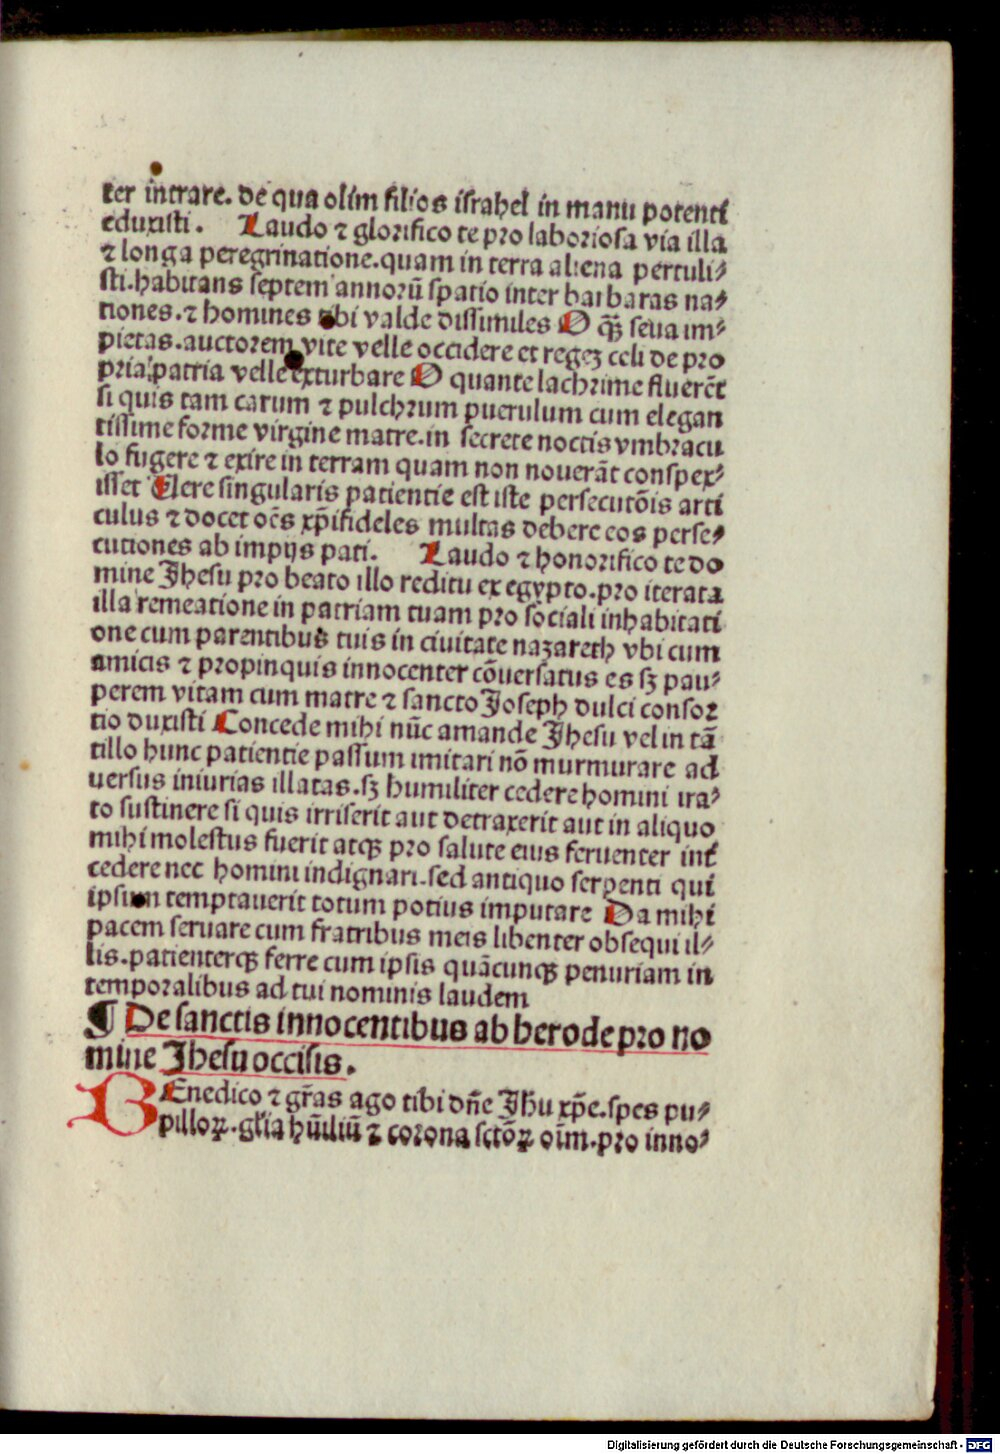 ter intrare. de qua olim filios israhel in manu potenti
eduxisti. Laudo ⁊ glorifico te pro laboriosa via illa
⁊ longa peregrinatione. quam in terra aliena pertuli⸗
sti. habitans septem annorū spatio inter barbaras na⸗
tiones. ⁊ homines tibi valde dissimiles O qꝫ̄ seua im⸗
pietas. auctorem vite velle occidere et regeꝫ celi de pro
pria patria velle exturbare O quante lachrime fluerēt
si quis tam carum ⁊ pulchrum puerulum cum elegan
tissime forme virgine matre. in secrete noctis vmbracu
lo fugere ⁊ exire in terram quam non nouerāt conspex⸗
isset Uere singularis patientie est iste persecutōis arti
culus ⁊ docet oēs xp̄ifideles multas debere eos perse⸗
cutiones ab impijs pati. Laudo ⁊ honorifico te do
mine Jhesu pro beato illo reditu ex egypto. pro iterata
illa remeatione in patriam tuam pro sociali inhabitati
one cum parentibus tuis in ciuitate nazareth vbi cum
amicis ⁊ propinquis innocenter cōuersatus es sꝫ pau⸗
perem vitam cum matre ⁊ sancto Joseph dulci consor
tio duxisti Concede mihi nūc amande Jhesu vel in tā
tillo hunc patientie passum imitari nō murmurare ad
uersus iniurias illatas. sꝫ humiliter cedere homini ira⸗
to sustinere si quis irriserit aut detraxerit aut in aliquo
mihi molestus fuerit atqꝫ pro salute eius feruenter int̄
cedere nec homini indignari. sed antiquo serpenti qui
ipsum temptauerit totum potius imputare Da mihi
pacem seruare cum fratribus meis libenter obsequi il⸗
lis. patienterqꝫ ferre cum ipsis quācunqꝫ penuriam in
temporalibus ad tui nominis laudem
¶ De sanctis innocentibus ab herode pro no
mine Jhesu occisis.
BEnedico ⁊ gr̄as ago tibi dn̄e Jh̄u xp̄e. spes pu⸗
pilloꝝ. gl̄ia hūiliū ⁊ corona sctōꝝ oīm. pro inno⸗
Digitalisierung gefördert durch die Deutsche Forschungsgemeinschaft - DFG